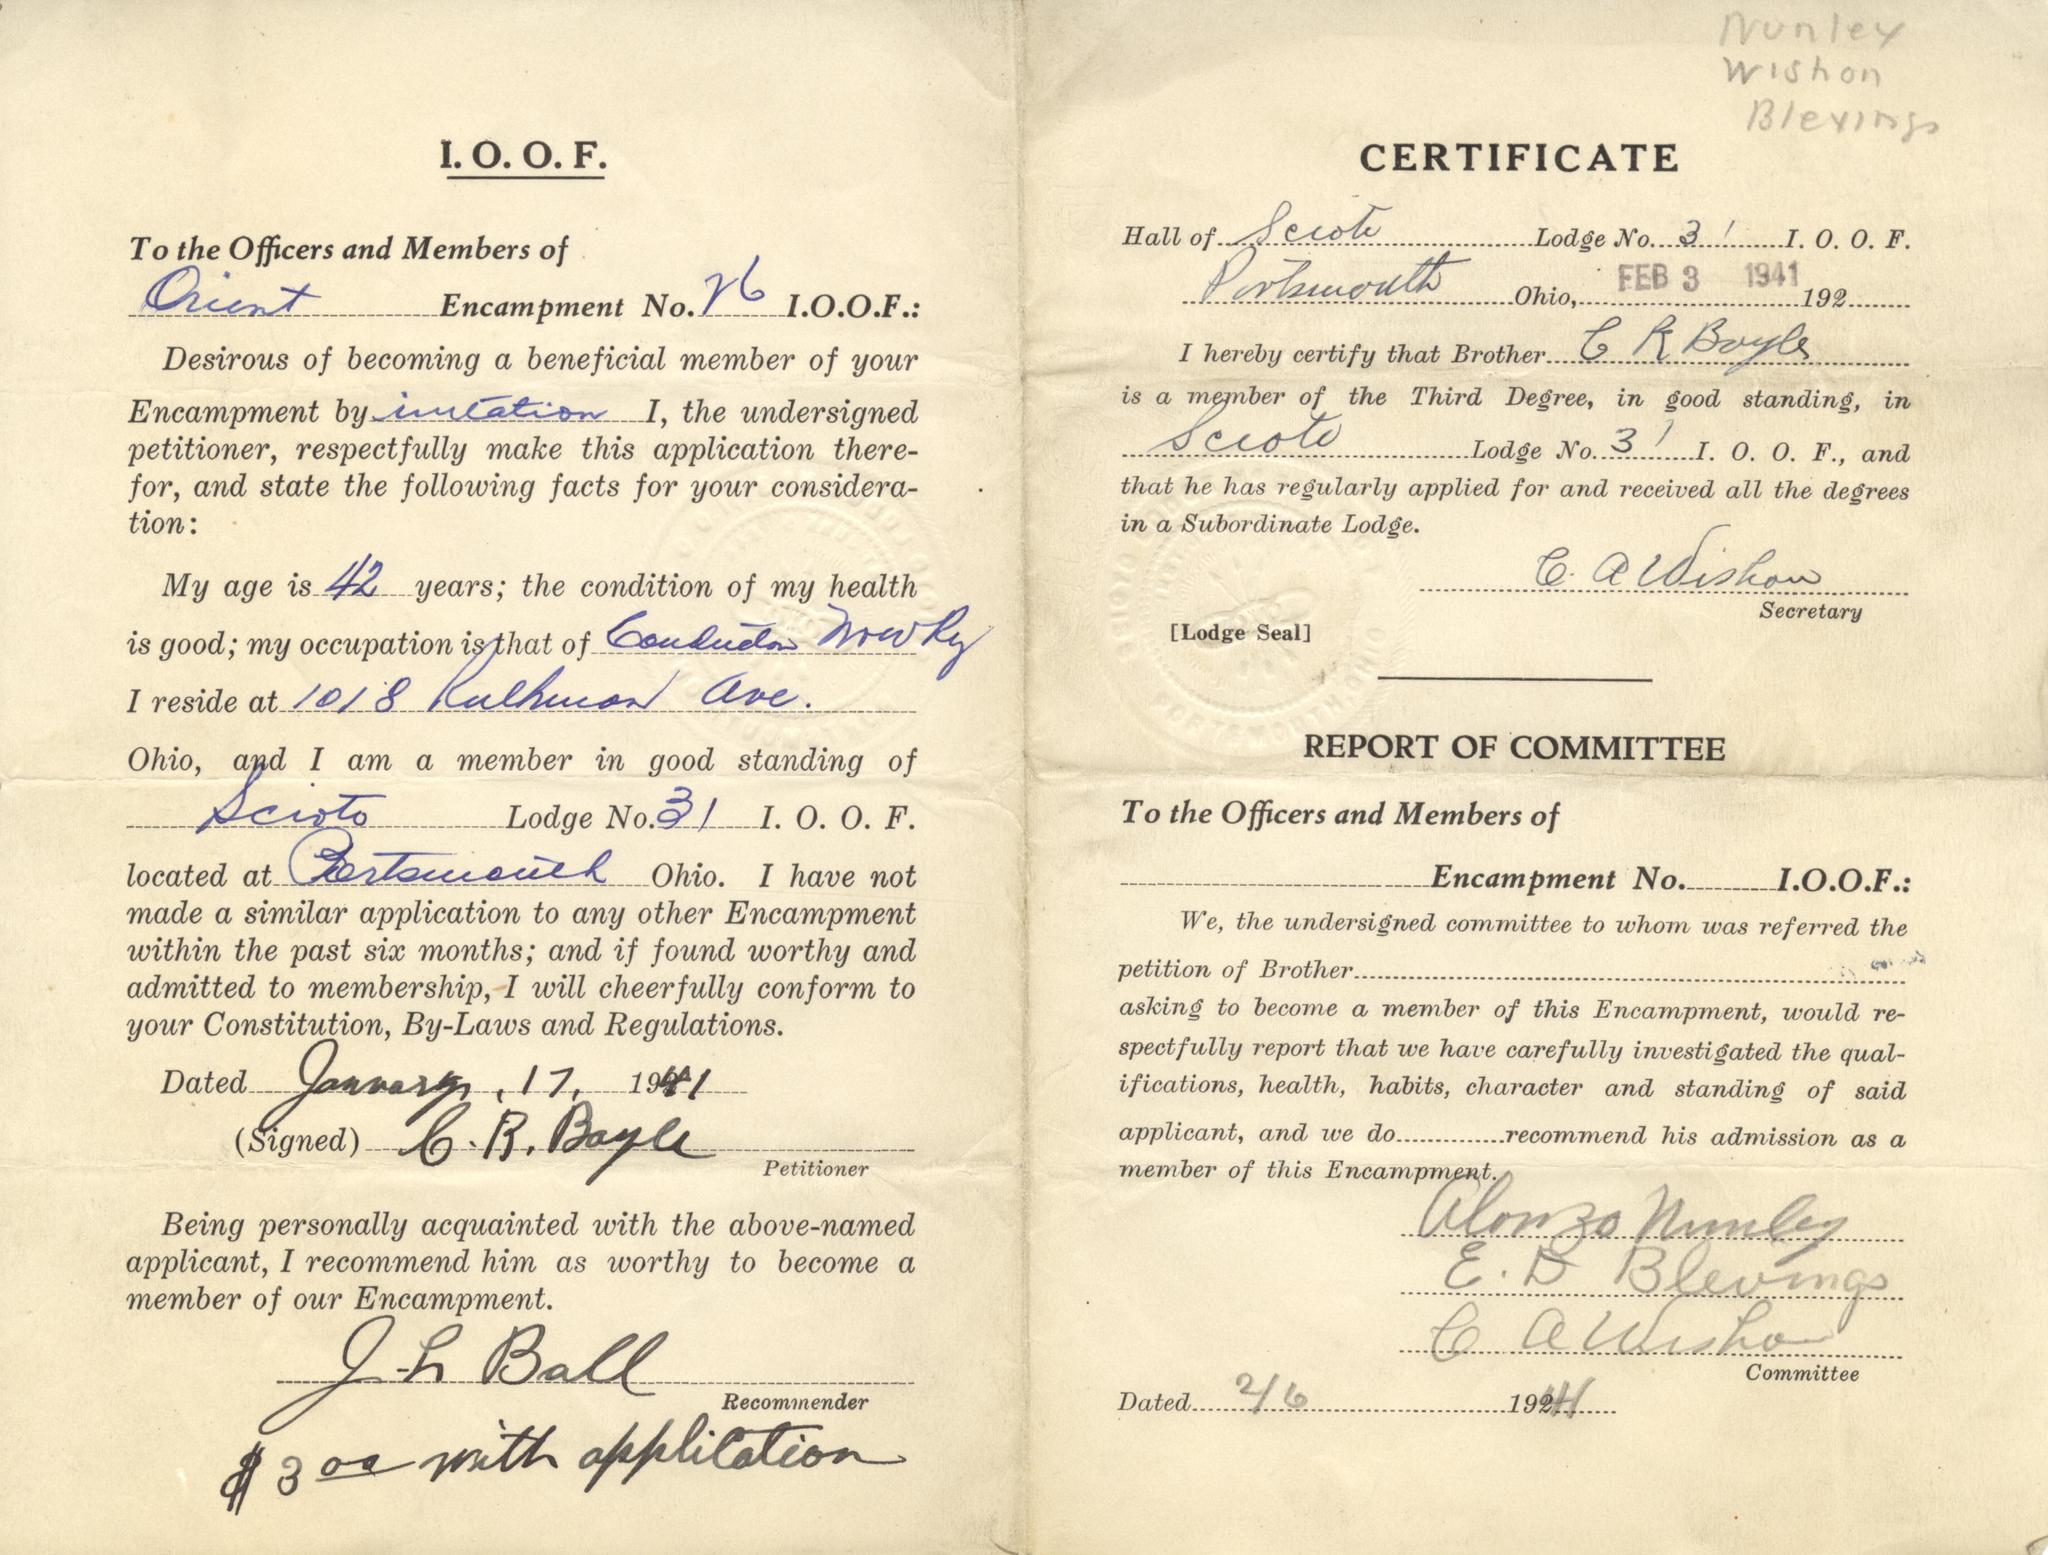 I.O.O.F.
To the Officers and Members of
Orient Encampment No. 26 I.O.O.F.:
Desirous of becoming a beneficial member of your
Encampment by initation I, the undersigned
petitioner, respectfully make this application there-
for, and state the following facts for your considera-
tion:
My age is 42 years; the condition of my health
is good; my occupation is that of Conductor N&W Ry
I reside at 1018 Kulhman Ave.
Ohio, and I am a member in good standing of
Scioto Lodge No. 31 I. O. O. F.
located at Portsmouth Ohio. I have not
made a similar application to any other Encampment
within the past six months; and if found worthy and
admitted to membership, I will cheerfully conform to
your Constitution, By-Laws and Regulations.
Dated January, 17, 1941
(Signed) C. R. Boyle
Petitioner
Being personally acquainted with the above-named
applicant, I recommend him as worthy to become a
member of our Encampment.
J. L. Ball
Recommender
$3 00 with application
Nunley
Wishon
Blevings
CERTIFICATE
Hall of Scioto Lodge No. 31 I. O. O. F.
Portsmouth Ohio, FEB 3 1941 192
I hereby certify that Brother C R Boyle
is a member of the Third Degree, in good standing, in
Scioto Lodge No. 31 I. O. O. F., and
that he has regularly applied for and received all the degrees
in a Subordinate Lodge.
C. A Wishon
Secretary
[Lodge Seal]
REPORT OF COMMITTEE
To the Officers and Members of
Encampment No. I.O.O.F.:
We, the undersigned committee to whom was referred the
petition of Brother
asking to become a member of this Encampment, would re-
spectfully report that we have carefully investigated the qual-
ifications, health, habits, character and standing of said
applicant, and we do recommend his admission as a
member of this Encampment.
Alonzo Nunley
E. D Blevings
C A Wishon
Committee
Dated 2/6 1941